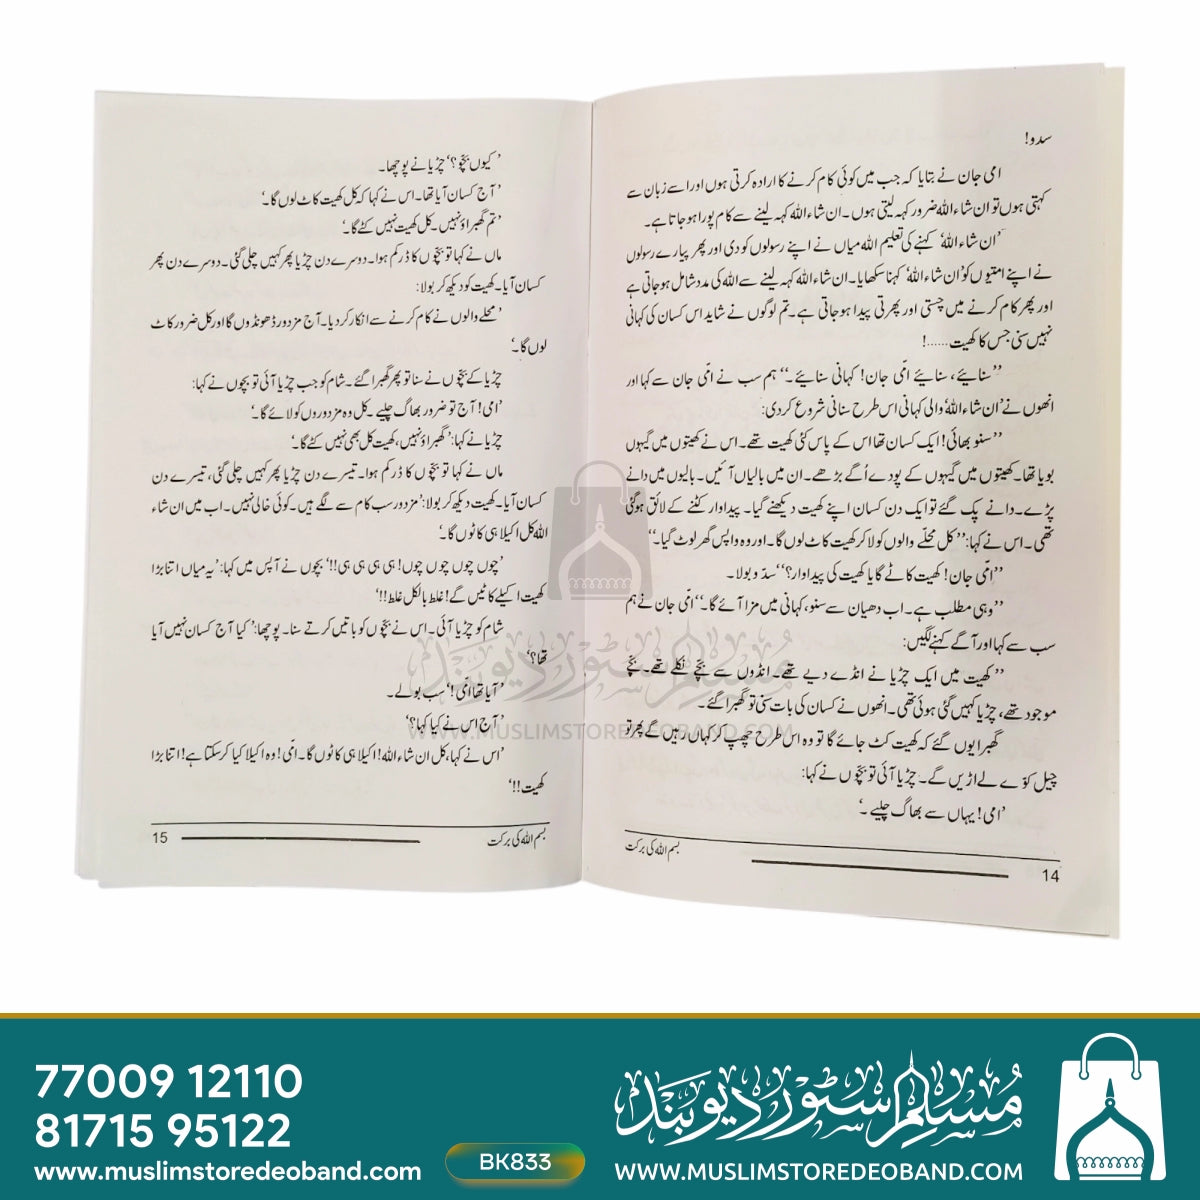 سدو!
امی جان نے بتایا کہ جب میں کوئی کام کرنے کا ارادہ کرتی ہوں اور اسے زبان سے
کہتی ہوں تو ان شاء اللہ ضرور کہہ لیتی ہوں۔ ان شاء اللہ کہہ لینے سے کام پورا ہو جاتا ہے۔
’ان شاء اللہ‘ کہنے کی تعلیم اللہ میاں نے اپنے رسولوں کو دی اور پھر پیارے رسولوں
نے اپنے امتیوں کو ’ان شاء اللہ‘ کہنا سکھایا۔ ان شاء اللہ کہہ لینے سے اللہ کی مدد شامل ہو جاتی ہے
اور پھر کام کرنے میں چستی اور پھرتی پیدا ہو جاتی ہے۔ تم لوگوں نے شاید اس کسان کی کہانی
نہیں سنی جس کا کھیت ......!
’’سنائیے، سنائیے امّی جان! کہانی سنائیے۔‘‘ ہم سب نے امّی جان سے کہا اور
انھوں نے ’ان شاء اللہ‘ والی کہانی اس طرح سنانی شروع کر دی:
’’سنو بھائی! ایک کسان تھا اس کے پاس کئی کھیت تھے۔ اس نے کھیتوں میں گیہوں
بویا تھا۔ کھیتوں میں گیہوں کے پودے اُگے بڑھے۔ ان میں بالیاں آئیں۔ بالیوں میں دانے
پڑے۔ دانے پک گئے تو ایک دن کسان اپنے کھیت دیکھنے گیا۔ پیداوار کٹنے کے لائق ہو گئی
تھی۔ اس نے کہا: ’’کل محلّے والوں کو لا کر کھیت کاٹ لوں گا۔ اور وہ واپس گھر لوٹ گیا۔‘‘
’’امّی جان! کھیت کاٹے گا یا کھیت کی پیداوار؟‘‘ سدّو بولا۔
’’وہی مطلب ہے۔ اب دھیان سے سنو، کہانی میں مزا آئے گا۔‘‘ امّی جان نے ہم
سب سے کہا اور آگے کہنے لگیں:
’’کھیت میں ایک چڑیا نے انڈے دیے تھے۔ انڈوں سے بچّے نکلے تھے۔ بچّے
موجود تھے، چڑیا کہیں گئی ہوئی تھی۔ انھوں نے کسان کی بات سنی تو گھبرا گئے۔
گھبرا یوں گئے کہ کھیت کٹ جائے گا تو وہ اس طرح چھپ کر کہاں رہیں گے پھر تو
چیل کوّے لے اڑیں گے۔ چڑیا آئی تو بچّوں نے کہا:
’امی! یہاں سے بھاگ چلیے۔‘
بسم اللہ کی برکت
14
’کیوں بچّو؟‘ چڑیا نے پوچھا۔
’آج کسان آیا تھا۔ اس نے کہا کہ کل کھیت کاٹ لوں گا۔‘
’تم گھبراؤ نہیں۔ کل کھیت نہیں کٹے گا۔‘
ماں نے کہا تو بچّوں کا ڈر کم ہوا۔ دوسرے دن چڑیا پھر کہیں چلی گئی۔ دوسرے دن پھر
کسان آیا۔ کھیت کو دیکھ کر بولا:
’محلے والوں نے کام کرنے سے انکار کر دیا۔ آج مزدور ڈھونڈوں گا اور کل ضرور کاٹ
لوں گا۔‘
چڑیا کے بچّوں نے سنا تو پھر گھبرا گئے۔ شام کو جب چڑیا آئی تو بچوں نے کہا:
’امی! آج تو ضرور بھاگ چلیے۔ کل وہ مزدوروں کو لائے گا۔‘
چڑیا نے کہا: ’گھبراؤ نہیں، کھیت کل بھی نہیں کٹے گا۔‘
ماں نے کہا تو بچّوں کا ڈر کم ہوا۔ تیسرے دن چڑیا پھر کہیں چلی گئی، تیسرے دن
کسان آیا۔ کھیت دیکھ کر بولا: ’مزدور سب کام سے لگے ہیں۔ کوئی خالی نہیں۔ اب میں ان شاء
اللہ کل اکیلا ہی کاٹوں گا۔‘
’چوں چوں چوں چوں! ہی ہی ہی ہی!!‘ بچوں نے آپس میں کہا: ’یہ میاں اتنا بڑا
کھیت اکیلے کاٹیں گے! غلط بالکل غلط!!‘
شام کو چڑیا آئی۔ اس نے بچّوں کو باتیں کرتے سنا۔ پوچھا: ’کیا آج کسان نہیں آیا
تھا؟‘
’آیا تھا امّی!‘ سب بولے۔
’آج اس نے کیا کہا؟‘
’اس نے کہا، کل ان شاء اللہ! اکیلا ہی کاٹوں گا۔ امّی! وہ اکیلا کیا کر سکتا ہے! اتنا بڑا
کھیت!!‘
بسم اللہ کی برکت
15
مسلم سٹور دیوبند
WWW.MUSLIMSTOREDEOBAND.COM
77009 12110
81715 95122
www.muslimstoredeoband.com
BK833
مسلم سٹور دیوبند
WWW.MUSLIMSTOREDEOBAND.COM